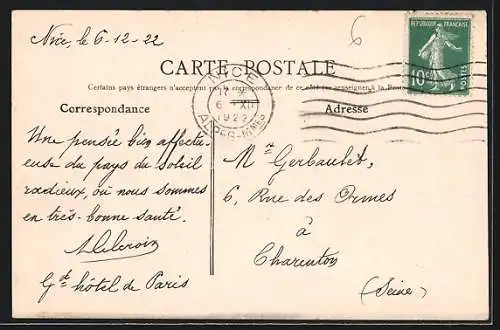 Nice, le 6-12-22
6
REPUBLIQUE FRANÇAISE
10c
POSTES
CARTE POSTALE
Certains pays étrangers n'acceptent pas la correspondance de ce côté (se renseigner à la Poste)
NICE
17
6 XII
1922
ALPES-MMES
Correspondance
Adresse
Une pensée bien affectu-
euse du pays du soleil
radieux, où nous sommes
en très-bonne santé.
Gd hôtel de Paris
Mr Gerbaulet,
6, Rue des Ormes
à
Charenton
(Seine)